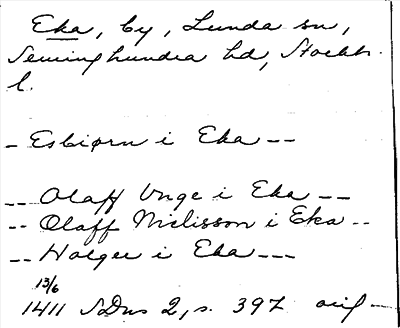 Eka, by, Lunda sn,
Seminghundra hd, Stockh.
l.
- Esbiørn i Eka --
-- Olaff Unge i Eka --
-- Olaff Nielisson i Eka --
-- Holger i Eka ---
13/6
1411 SDns 2, s. 397 orig -